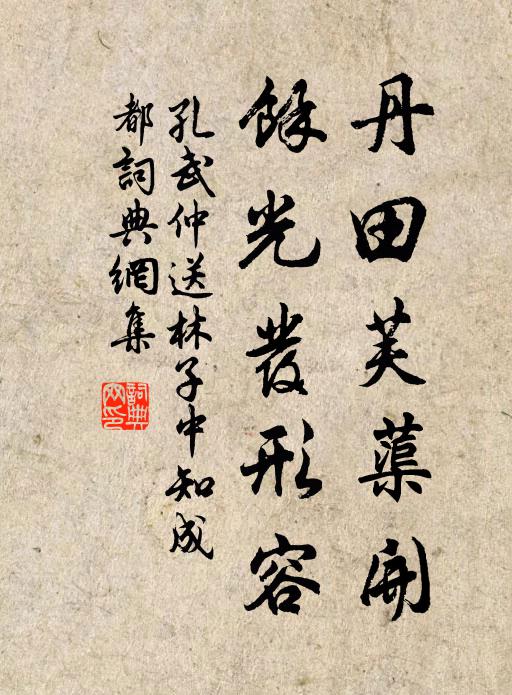 丹田芙蕖開
餘光發形容
孔武仲送林子中知成
都詞典網集
詞典網印